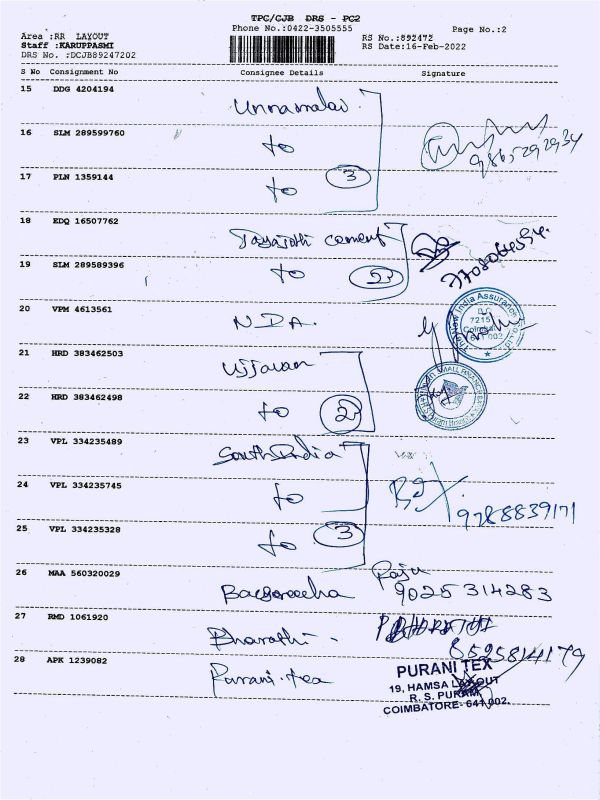 TPC/CJB DRS - PC2
Phone No.:0422-3505555
Page No.:2
Area :RR LAYOUT
RS No.:892472
Staff :KARUPPASMI
RS Date:16-Feb-2022
DRS No. :DCJB89247202
S No Consignment No Consignee Details Signature
15 DDG 4204194 Unnamalai
16 SLM 289599760 to
9865292934
17 PLN 1359144 to 3
18 EDQ 16507762 cement
19 SLM 289589396 to 2
20 VPM 4613561 N.D.A.
The New India Assurance Co. Ltd.
7215
641 002
21 HRD 383462503 Ujjavan
SMALL FINANCE BANK
22 HRD 383462498 to 2
23 VPL 334235489 South India
24 VPL 334235745 to
9788839171
25 VPL 334235328 to 3
26 MAA 560320029
Raju
9025314283
27 RMD 1061920 Bharathi -
8525814179
28 APK 1239082 Purani.tea
PURANI TEX
19, HAMSA LAYOUT
R. S. PURAM,
COIMBATORE- 641 002.